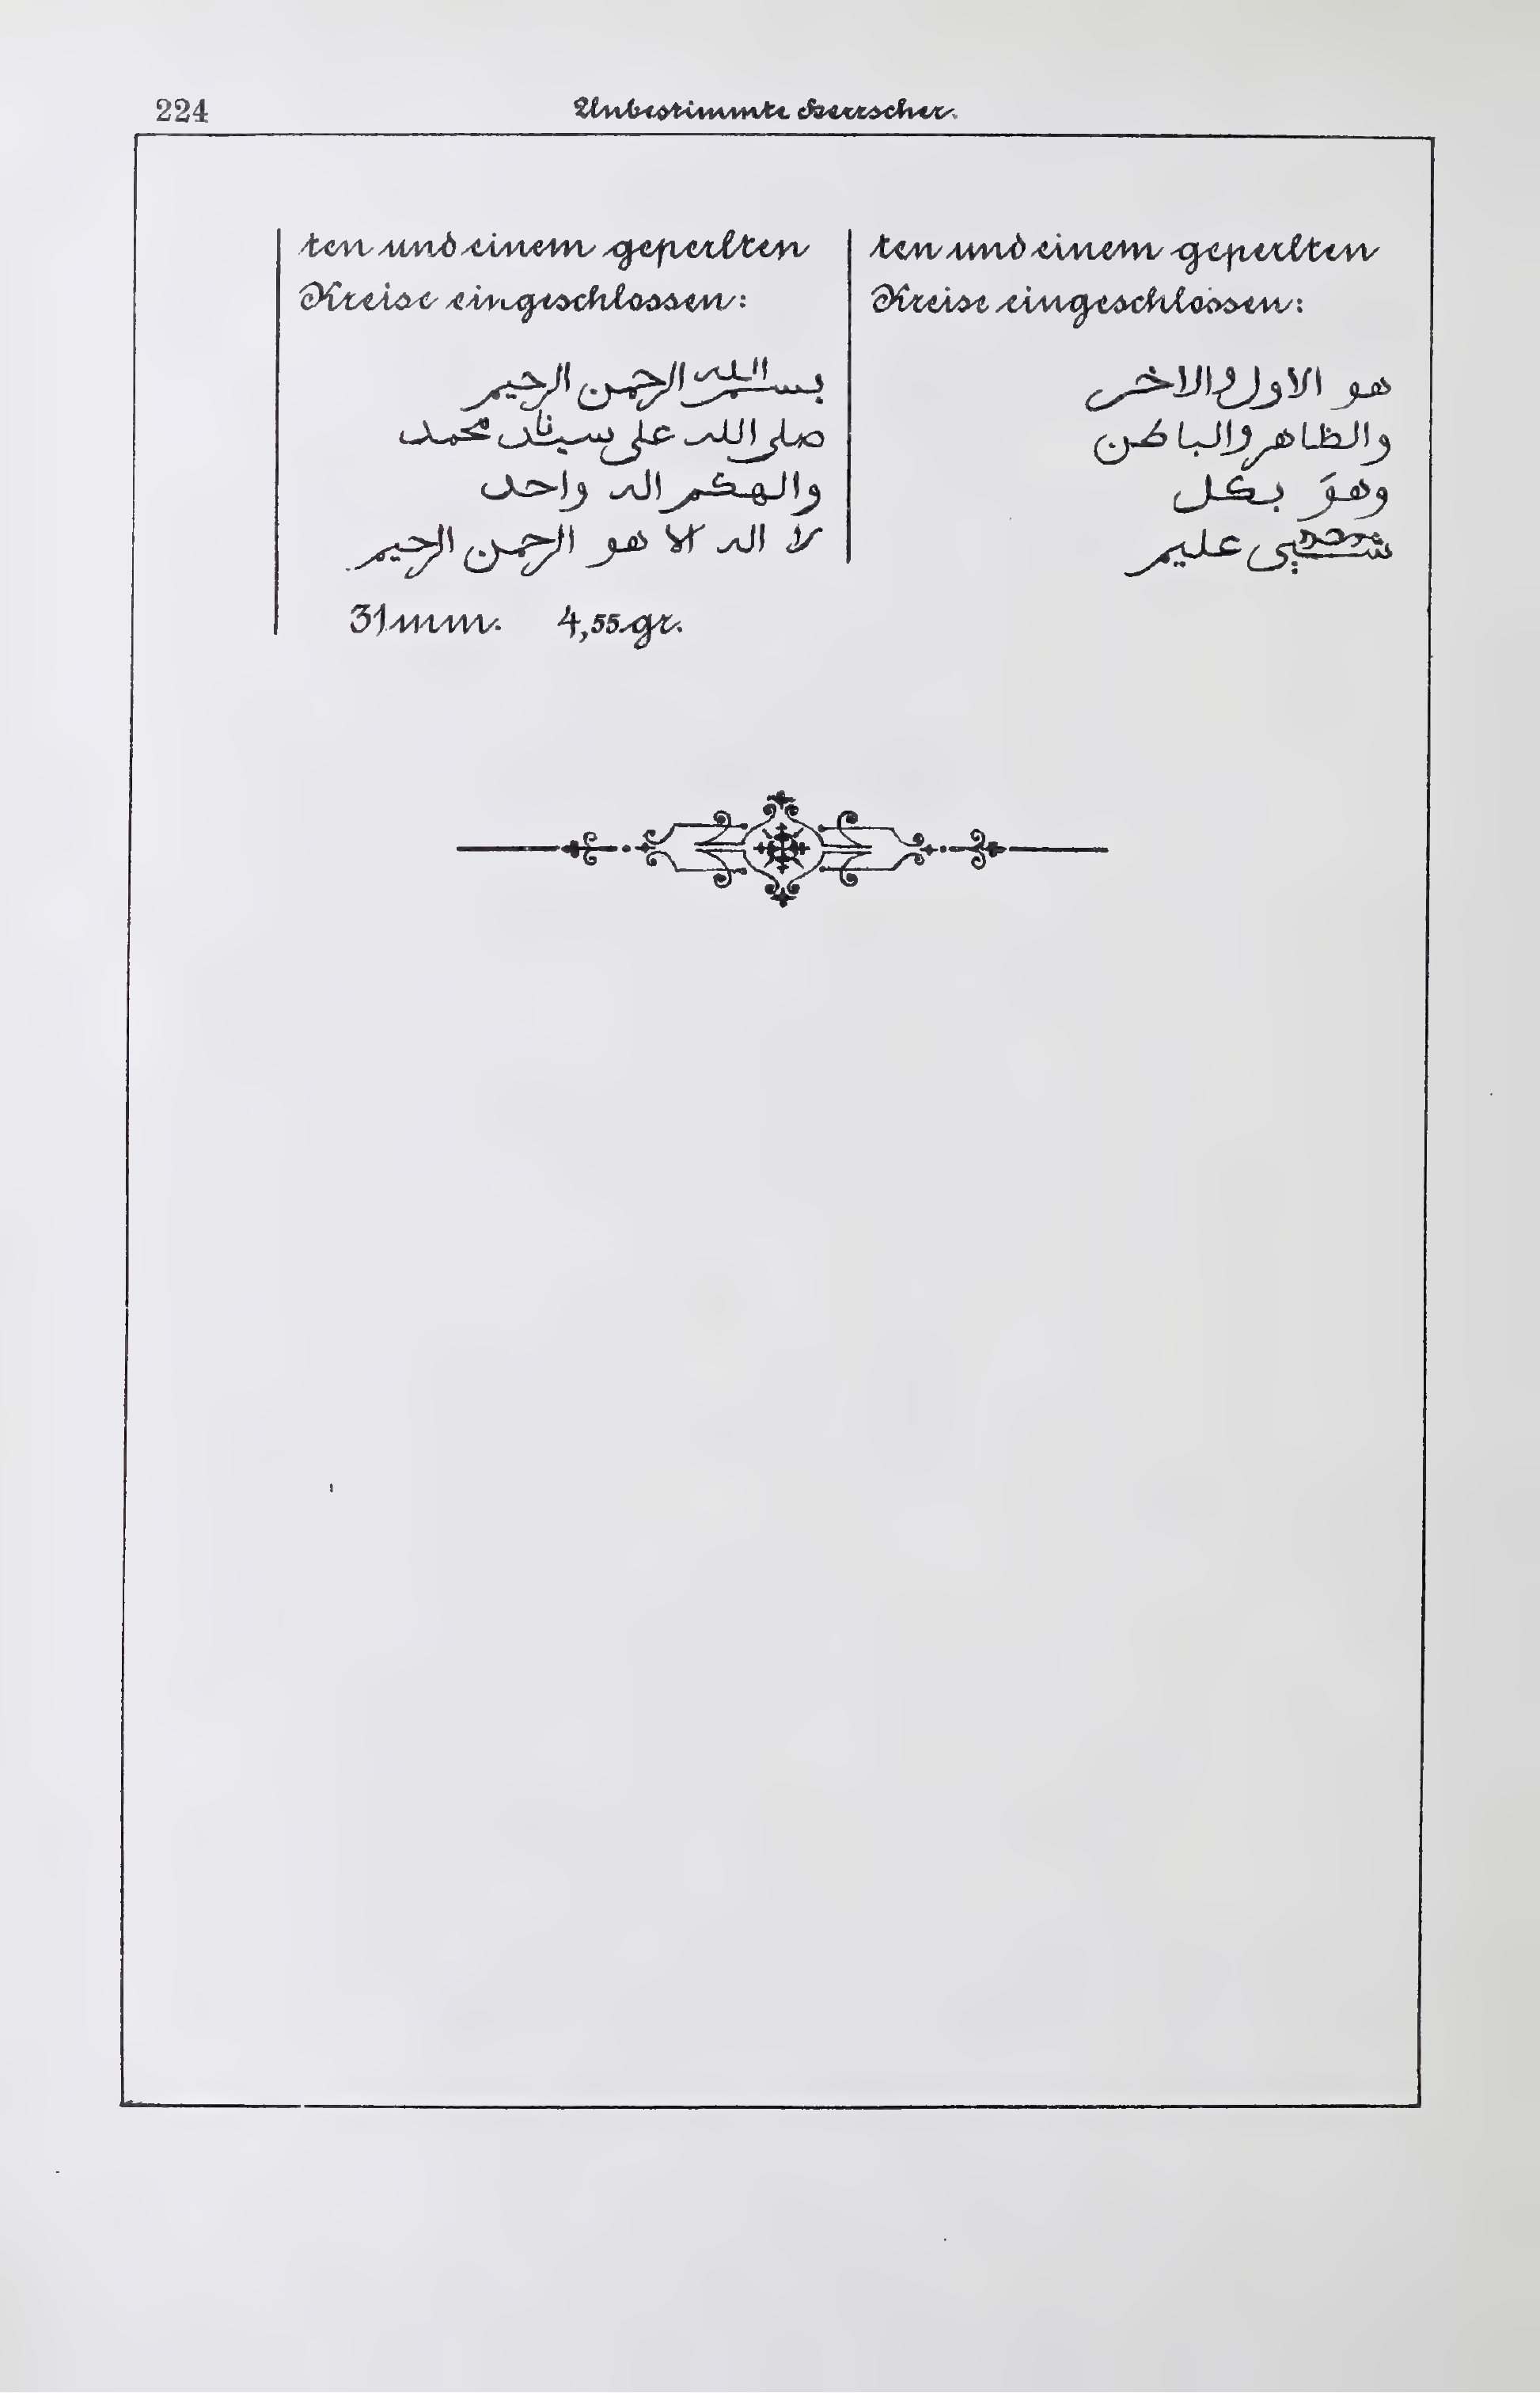 224
Unbestimmte Herrscher.
ten und einem geperlten
Kreise eingeschlossen:
بسم الله الرحمن الرحيم
صلى الله على سيدنا محمد
والهكم اله واحد
لا اله الا هو الرحمن الرحيم
31 mm. 4,55 gr.
ten und einem geperlten
Kreise eingeschlossen:
هو الاول والاخر
والظاهر والباطن
وهوَ بكل
شيى عليم